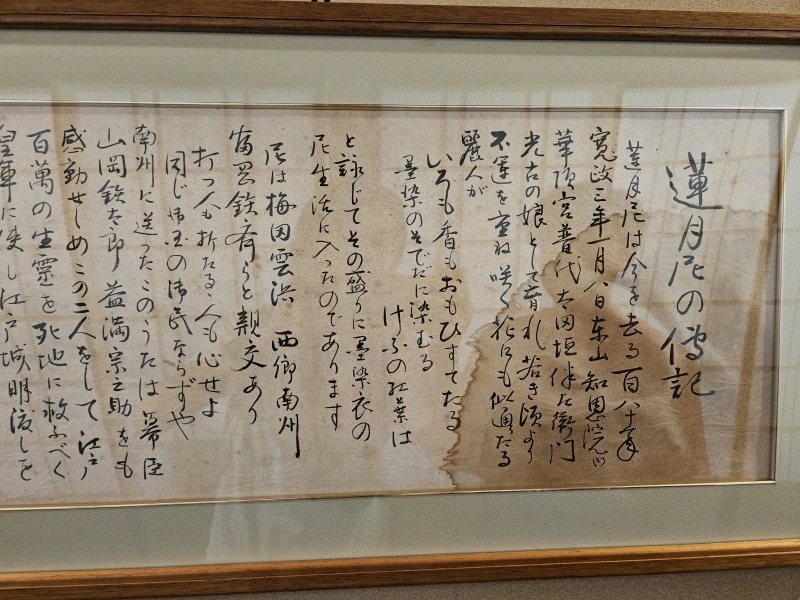 蓮月尼の傳記
蓮月尼は今を去る百八十年
寛政三年一月八日東山知恩院内
華頂宮普代太田垣伴左衛門
光古の娘として育れ若き頃より
不運を重ね咲く花にも似通たる
麗人が
いろも香もおもひすてたる
墨染のそでだに染むる
けふの紅葉は
と詠じてその盛りに墨染衣の
尼生活に入ったのであります
尼は梅田雲浜 西郷南州
富岡鉄斎らと親交あり
打つ人も打たるゝ人も心せよ
同じ御国の御民ならずや
南州に送ったこのうたは幕臣
山岡鉄太郎 益満宗之助をも
感動せしめこの二人をして江戸
百萬の生霊を死地に救ふべく
皇軍に使し江戸城明渡しを